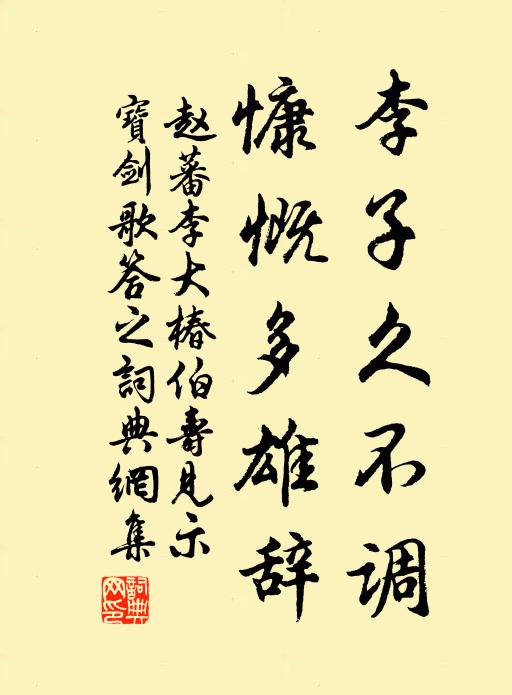 李子久不调
慷慨多雄辞
赵蕃李大椿伯壽見示
寶劍歌答之詞典網集
詞典網印